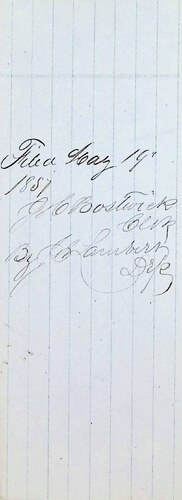 Filed May 19th
1851
J C Bostwick
Clk
By J Lambert
Dep